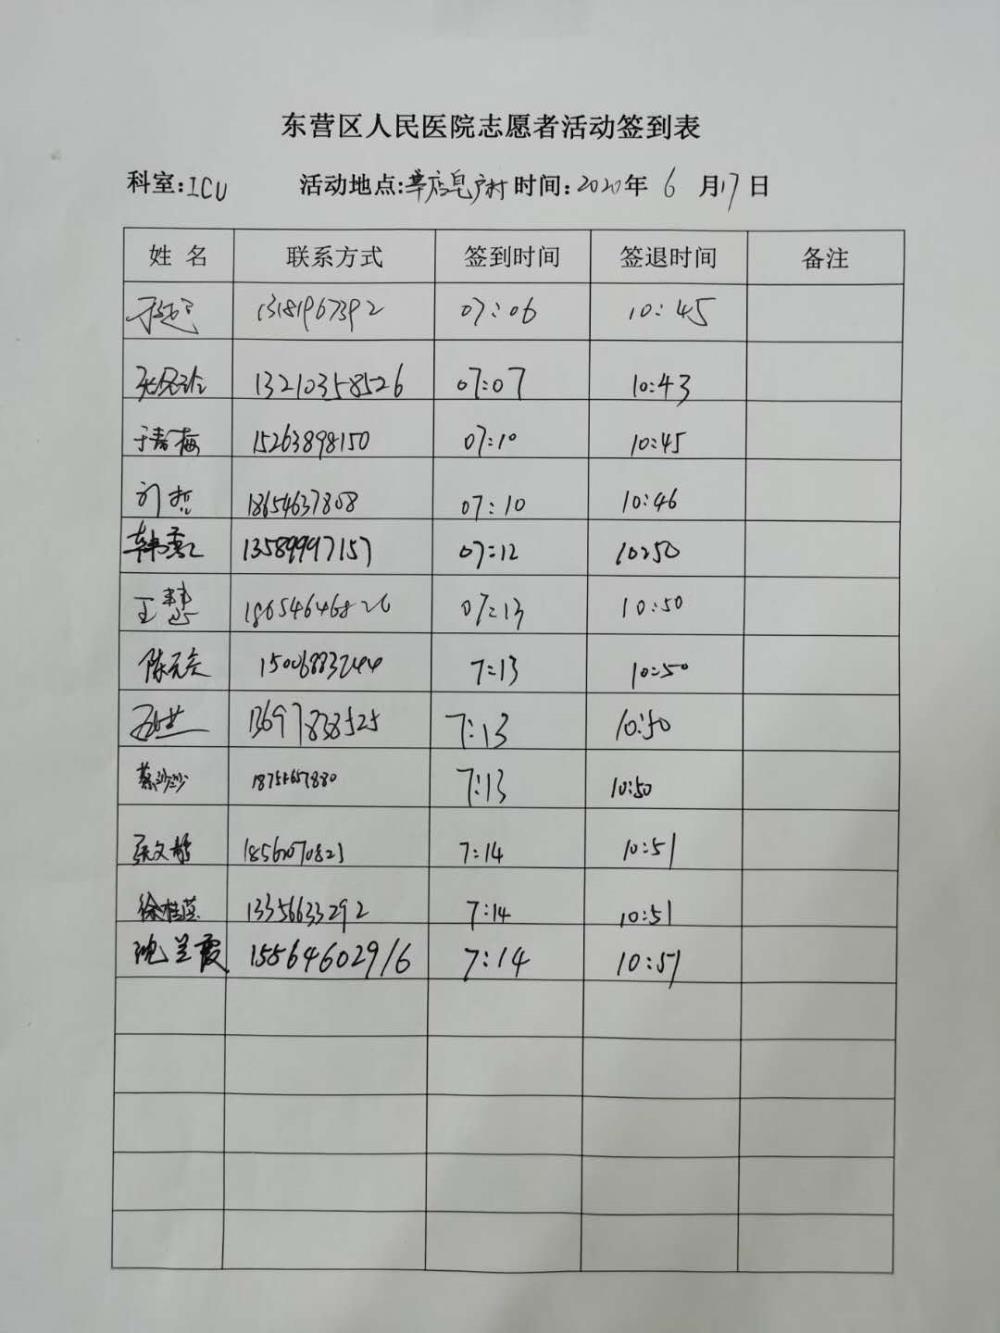 东营区人民医院志愿者活动签到表
科室:ICU 活动地点:莘店皂户村 时间:2020年 6 月17日
姓 名 联系方式 签到时间 签退时间 备注
13181967392 07:06 10:45
13210358526 07:07 10:43
于春梅 15263898150 07:10 10:45
刘哲 18654637808 07:10 10:46
13589997157 07:12 10:50
王慧 18654646826 07:13 10:50
15006883244 7:13 10:50
13697838525 7:13 10:50
蔡沙沙 7:13 10:50
张文静 18562070821 7:14 10:51
徐桂英 13356633292 7:14 10:51
沈兰霞 15564602916 7:14 10:51